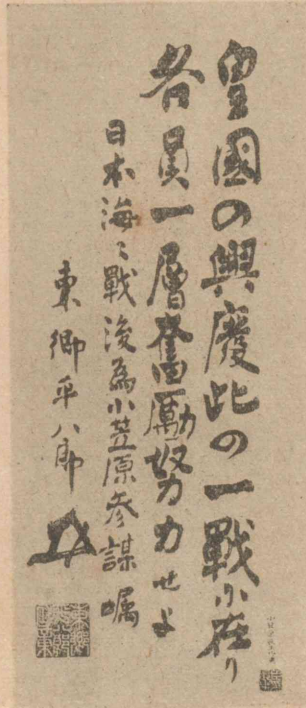 皇國の興廢此の一戰に在り
各員一層奮勵努力せよ
日本海々戰後為小笠原参謀嘱
東郷平八郎